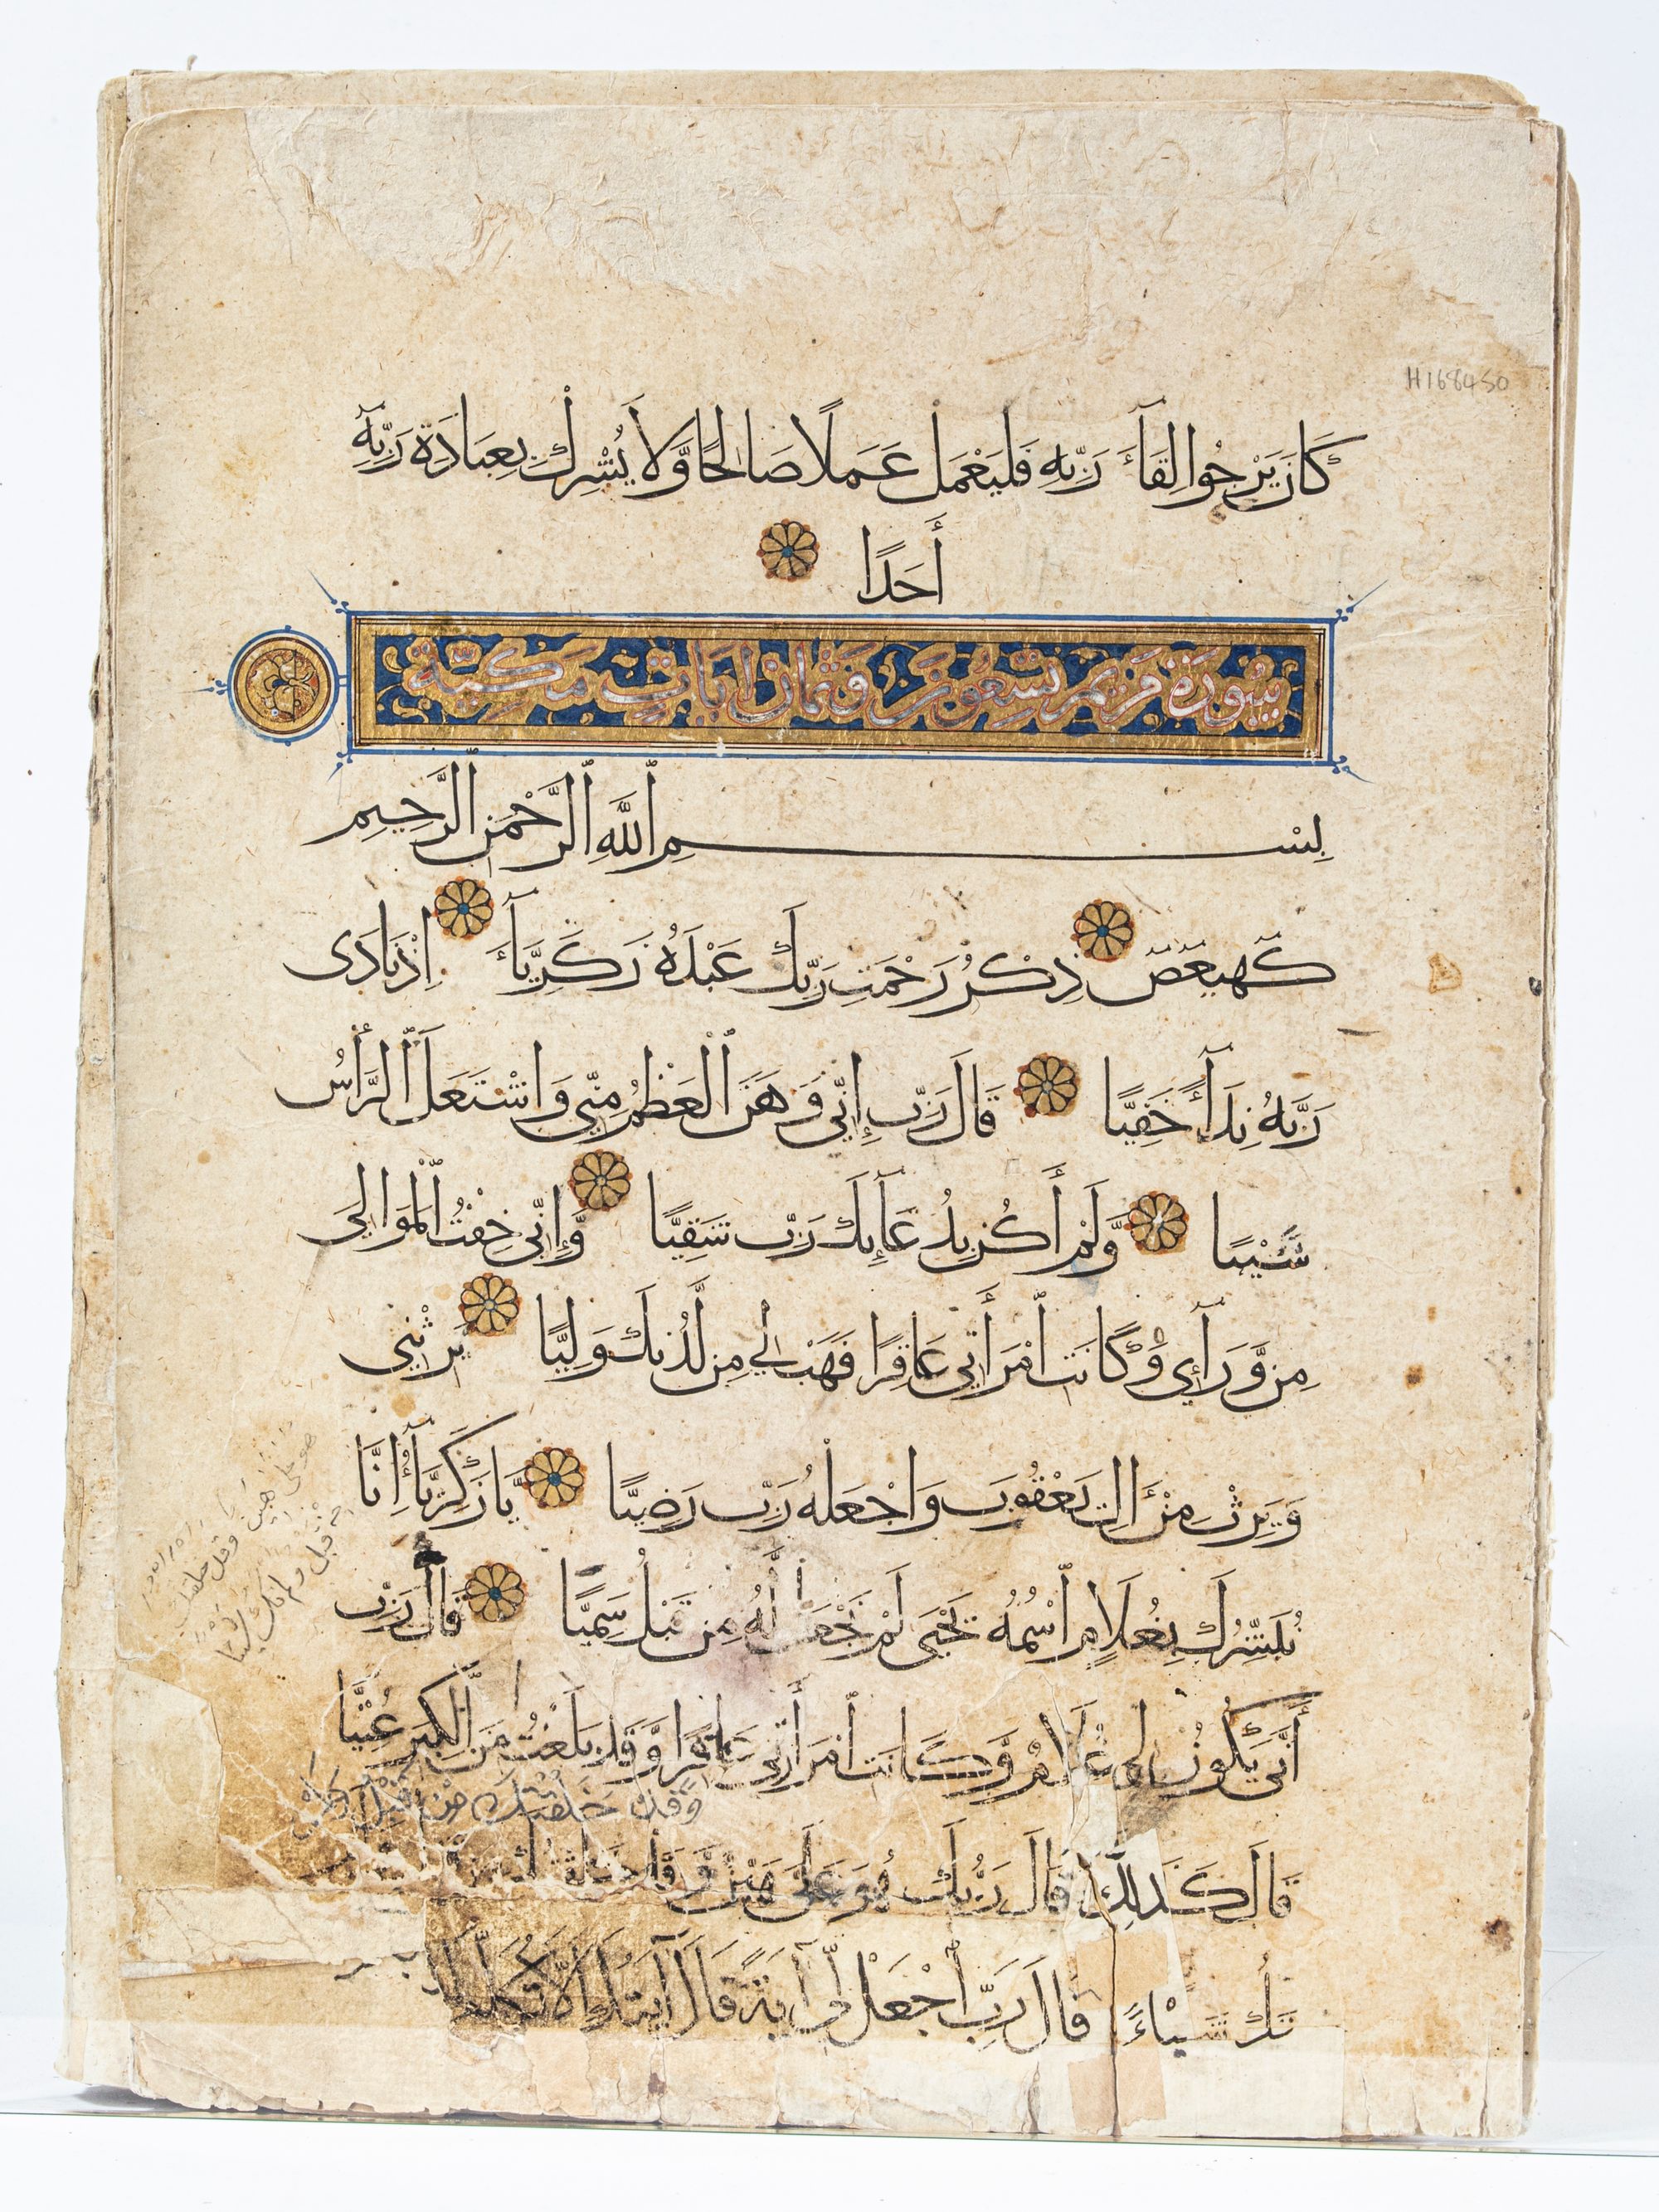 H168450
كَانَ يَرْجُوا لِقَآءَ رَبِّهِ فَلْيَعْمَلْ عَمَلًا صَالِحًا وَّلَا يُشْرِكْ بِعِبَادَةِ رَبِّهِٓ
أَحَدًا
سُورَةُ مَرْيَمَ تِسْعُونَ وَثَمَانِ ايَاتٍ مَكِّيَّة
بِسْمِ ٱللَّهِ ٱلرَّحْمٰنِ ٱلرَّحِيمِ
كٓهيعٓصٓ ذِكْرُ رَحْمَتِ رَبِّكَ عَبْدَهُ زَكَرِيَّآءَ اِذْ نَادَى
رَبَّهُ نِدَآءً خَفِيًّا قَالَ رَبِّ إِنِّي وَهَنَ ٱلْعَظْمُ مِنِّي وَاشْتَعَلَ ٱلرَّأْسُ
شَيْبًا وَّلَمْ أَكُنْ بِدُعَآئِكَ رَبِّ شَقِيًّا وَّإِنِّي خِفْتُ ٱلْمَوَالِيَ
مِن وَّرَآءِي وَكَانَتِ ٱمْرَأَتِي عَاقِرًا فَهَبْ لِي مِن لَّدُنْكَ وَلِيًّا يَّرِثُنِي
وَيَرِثُ مِنْ ءَالِ يَعْقُوبَ وَاجْعَلْهُ رَبِّ رَضِيًّا يَّا زَكَرِيَّآءُ اِنَّا
نُبَشِّرُكَ بِغُلَامٍ ٱسْمُهُ يَحْيَى لَمْ نَجْعَل لَّهُ مِن قَبْلُ سَمِيًّا قَالَ رَبِّ
أَنَّى يَكُونُ لِي غُلَامٌ وَّكَانَتِ ٱمْرَأَتِي عَاقِرًا وَّقَدْ بَلَغْتُ مِنَ ٱلْكِبَرِ عُتِيًّا
وَقَدْ خَلَقْتُكَ مِنْ قَبْلُ وَلَمْ
قَالَ كَذَلِكَ قَالَ رَبُّكَ هُوَ عَلَيَّ هَيِّنٌ وَّقَدْ خَلَقْتُكَ
تَكُ شَيْـًٔا قَالَ رَبِّ ٱجْعَلْ لِّي آيَةً قَالَ آيَتُكَ أَلَّا تُكَلِّمَ